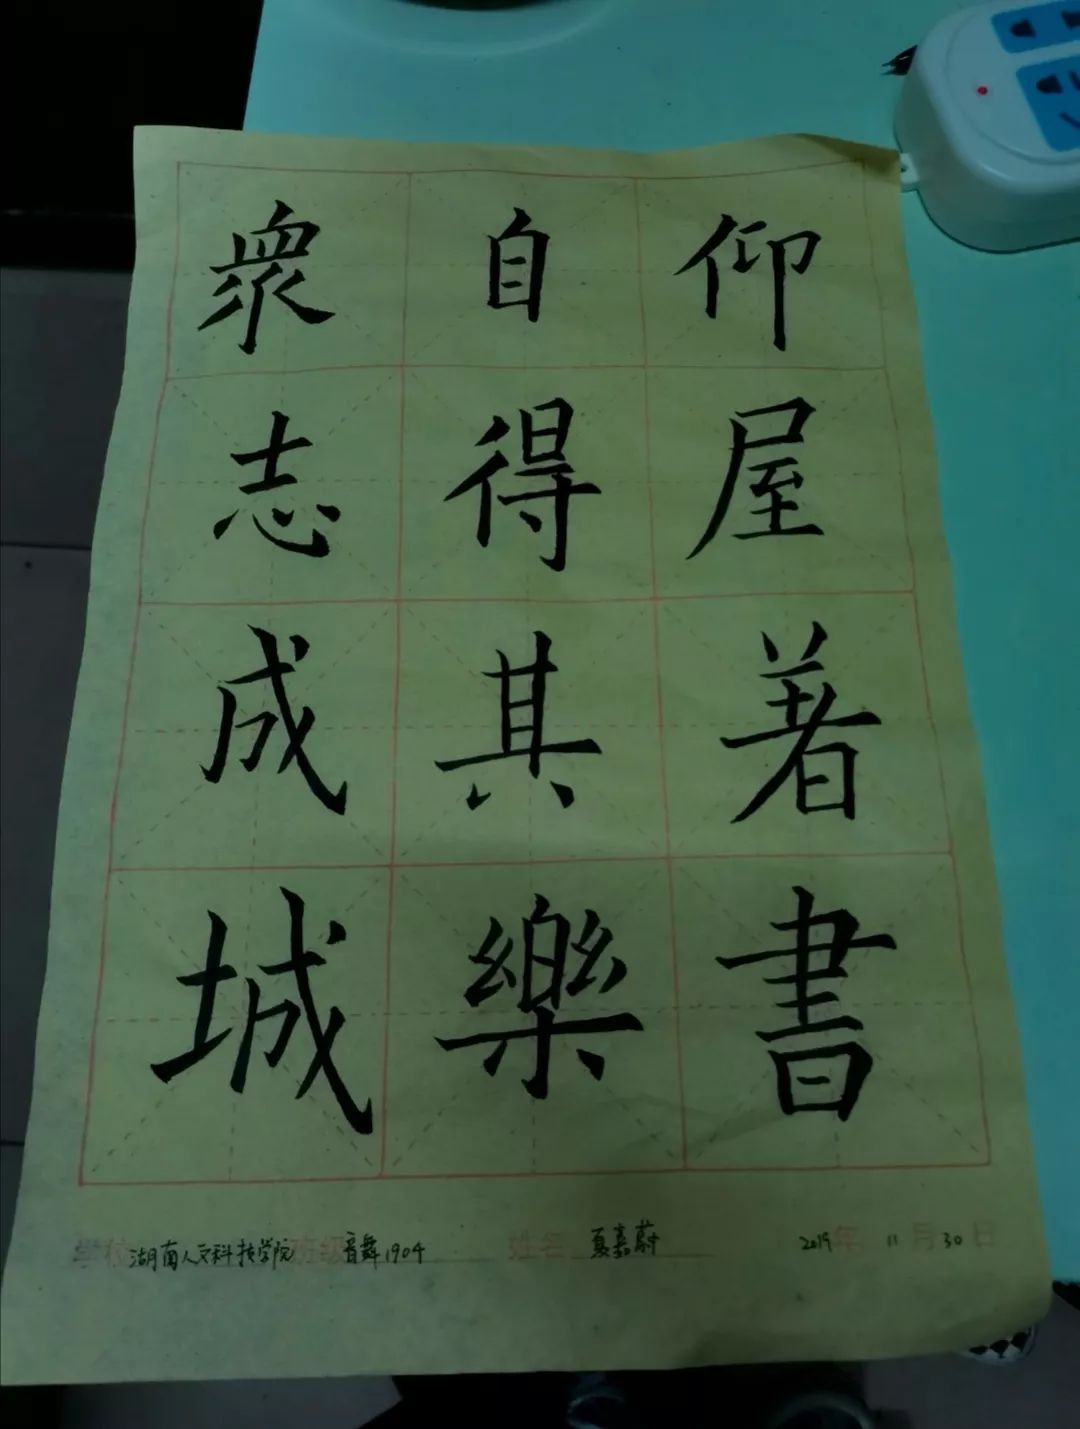 仰屋著書
自得其樂
衆志成城
学校 湖南人文科技学院 班级 音舞1904 姓名 夏嘉蔚 2019年11月30日